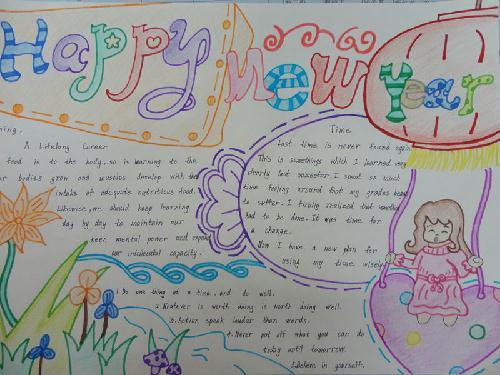 Happy New Year
ning.
A Lifelong Career
food is to the body, so is learning to the
bodies grow and muscles develop with the
intake of adequate nutritious food.
Likewise, we should keep learning
day by day to maintain our
keen mental power and expand
our intellectual capacity.
Time
Lost time is never found again
This is something which I learned very
clearly last semester. I spent so much
time fooling around that my grades began
to suffer. I finally realized that something
had to be done. It was time for
a change.
Now I have a new plan for
using my time wisely
1. Do one thing at a time, and do well.
2. Whatever is worth doing is worth doing well.
3. Action speak louder than words.
4. Never put off what you can do
today until tomorrow.
5. Believe in yourself.